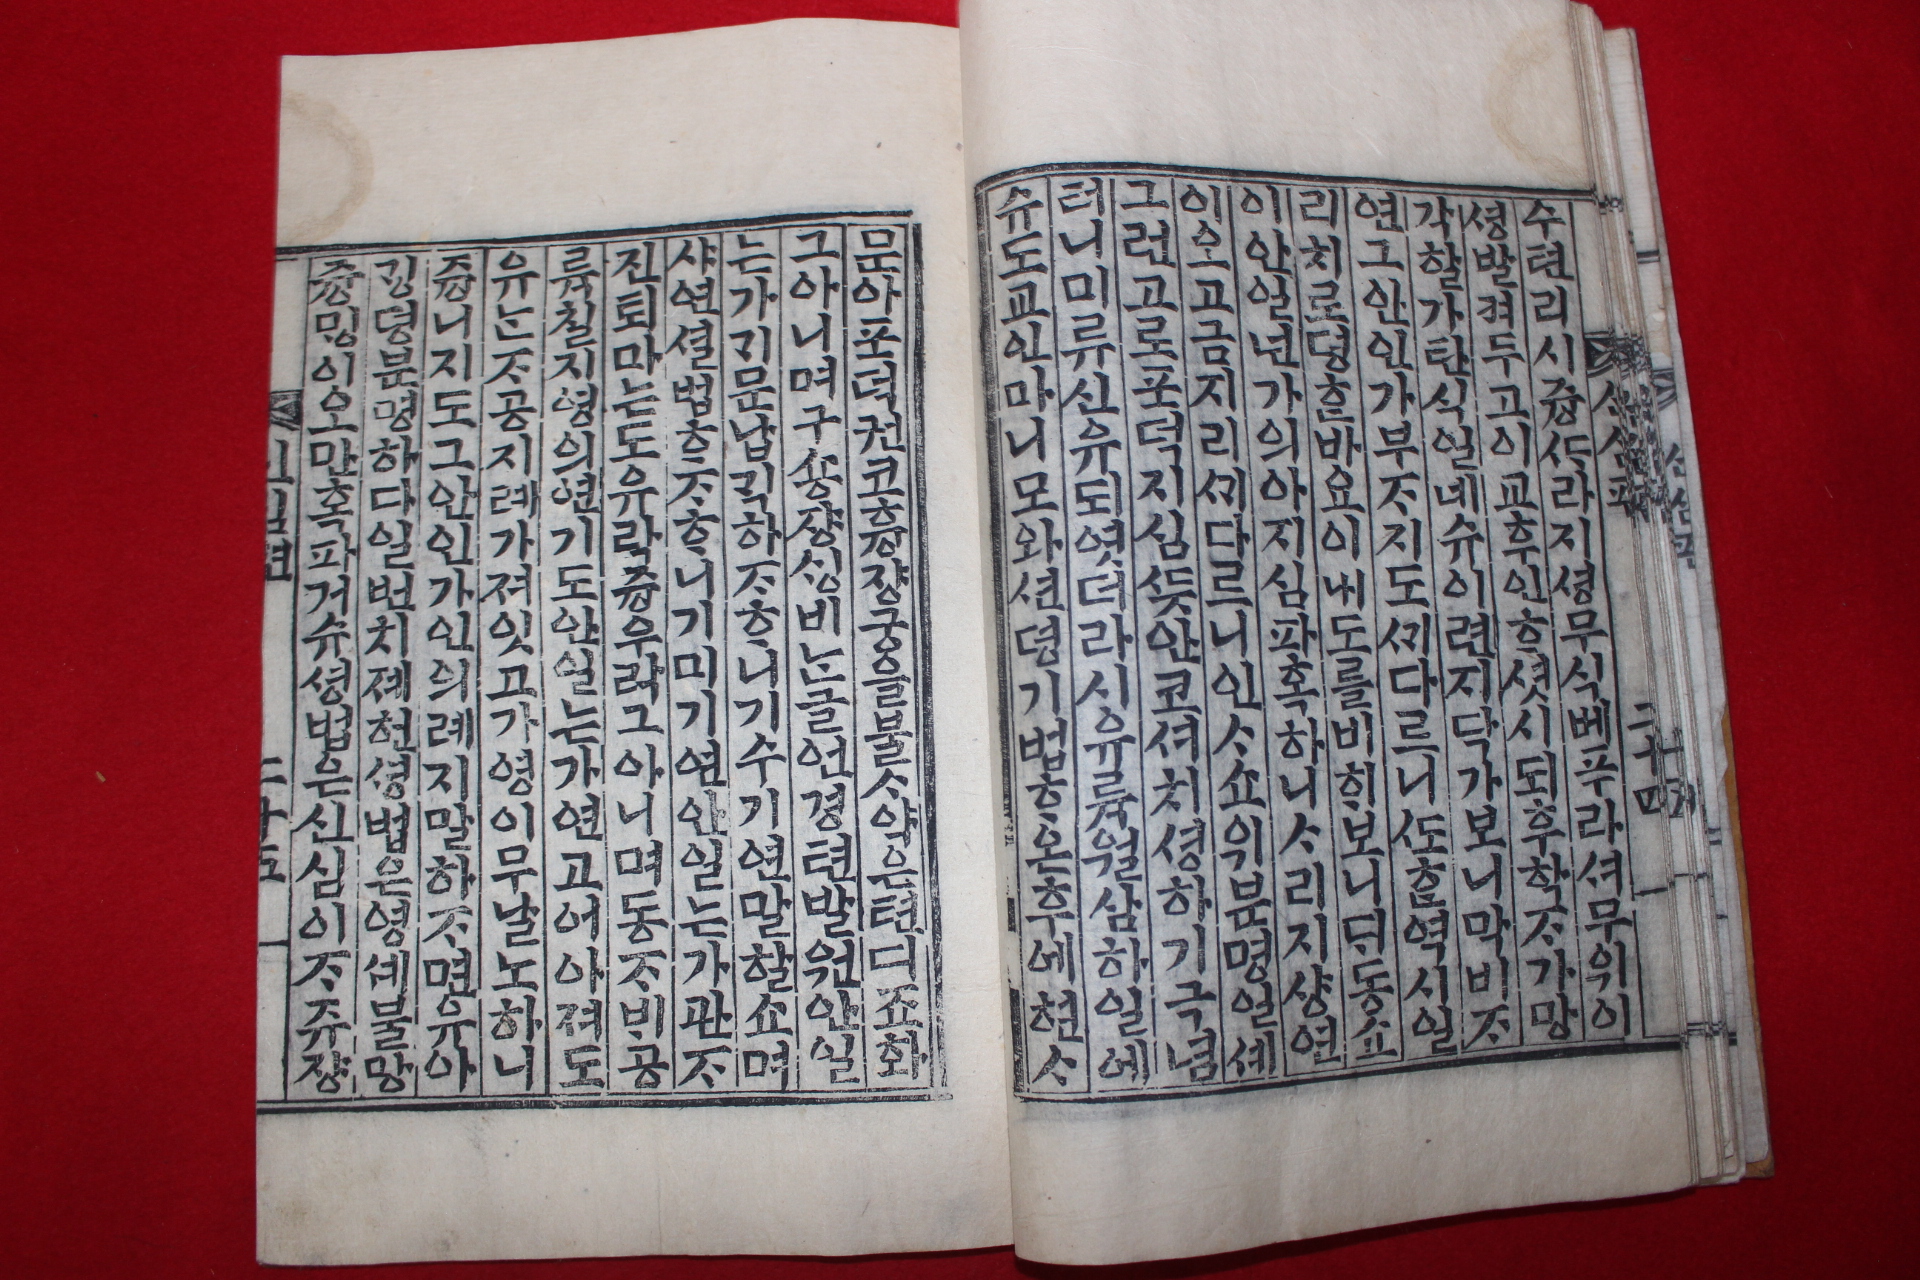 수텬리시즁ᄯᅡ라지셩무식베푸라셔무위이
셩발켜두고이교후인ᄒᆞ셧시되후학ᄌᆞ가망
각할가탄식일네슈이련지닥가보니막비ᄌᆞ
연그안인가부ᄌᆞ지도ᄭᅵ다르니ᄯᅩᄒᆞᆷ역시일
리치로뎡ᄒᆞᆫ바요이ᄂᆡ도를비ᄒᆡ보니ᄃᆡ동쇼
이안일넌가의아지심파혹하니ᄉᆞ리지샹연
이오고금지리ᄭᅵ다르니인ᄉᆞ쇼위분명일셰
그런고로포덕지심ᄯᅳᆺ안코셔치셩하기극념
터니미류신유되엿더라시유류월삼하일에
슈도교인마니모와션뎡기범ᄒᆞ온후에현ᄉᆞ
문아포덕권코흥쟝궁을불ᄉᆞ약은텬디죠화
그아니며구숑쟝싱비ᄂᆞᆫ글언경텬발원안일
는가긔문납긱하ᄌᆞᄒᆞ니기수기연말할쇼며
샤연셜법ᄒᆞᄌᆞᄒᆞ니기미기연안일는가관ᄌᆞ
진퇴마는도유락즁우락그아니며동ᄌᆞ비공
륙칠지영의연기도안일는가연고어아져도
유ᄂᆞᆫᄌᆞ공지례가져잇고가영이무날노하니
즁니지도그안인가인의례지말하ᄌᆞ면유아
깅뎡분명하다일번치졔현셩법은영셰불망
즁밍이오만혹파거슈셩법은신심이ᄌᆞ쥬쟝